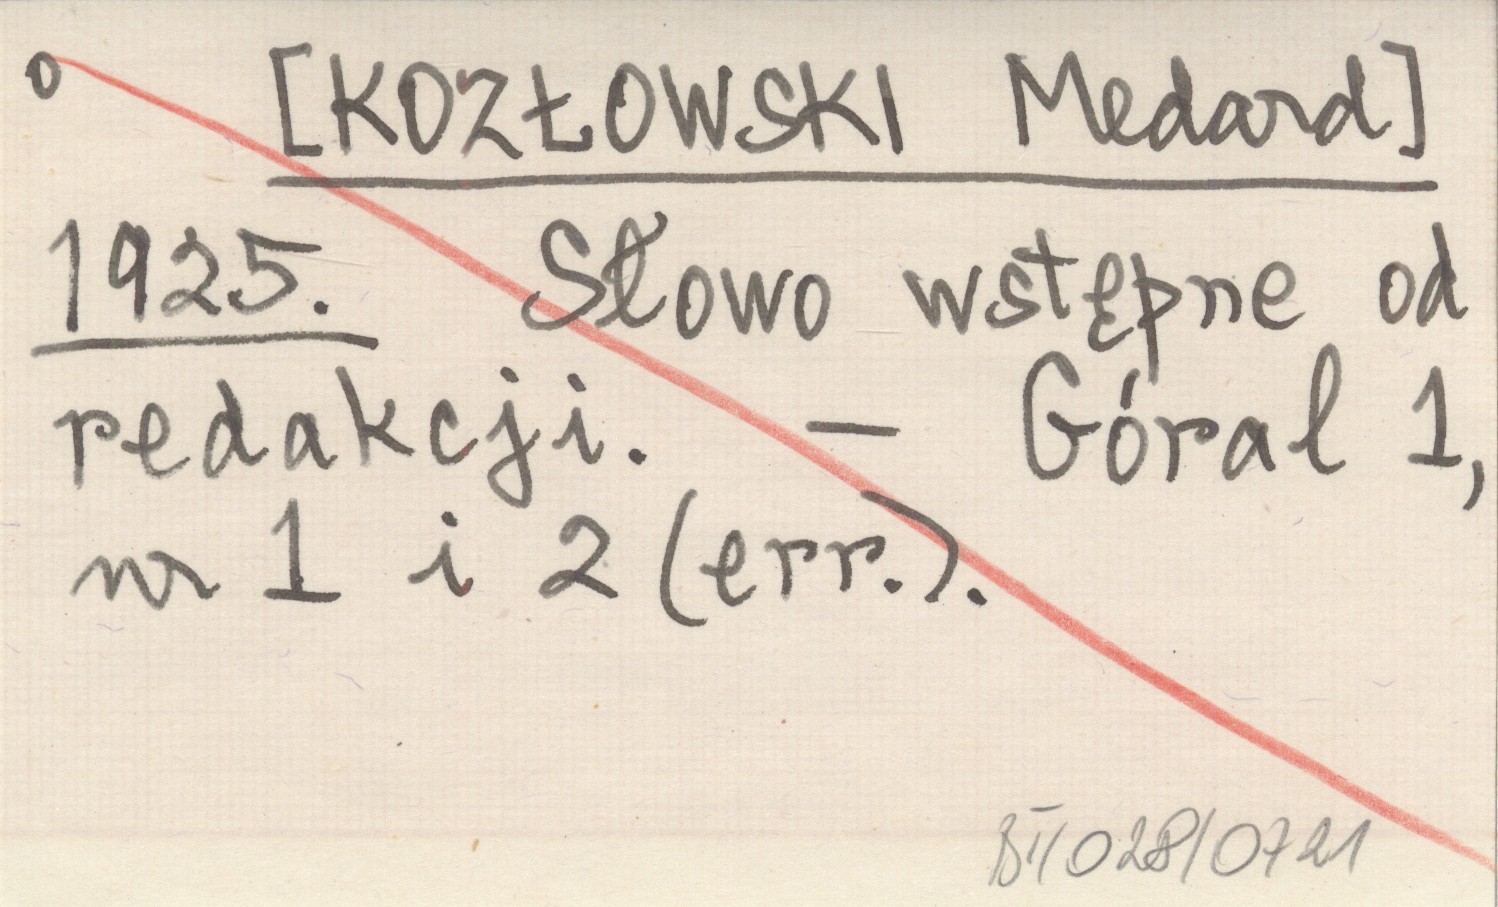 o [KOZŁOWSKI Medard]
1925. Słowo wstępne od
redakcji. — Góral 1,
nr 1 i 2 (err.).
BI/028/0721